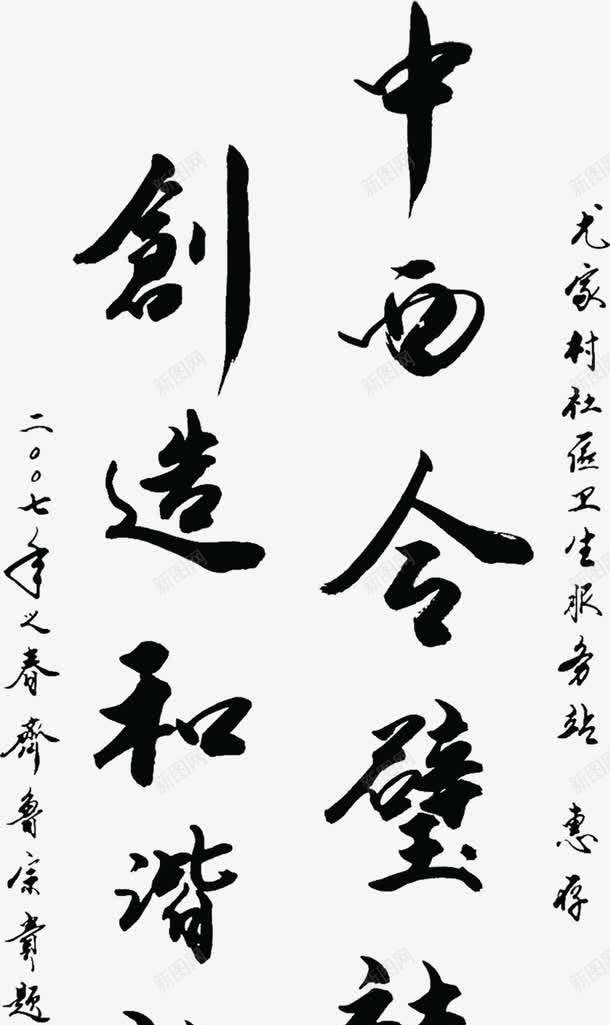 尤家村社區卫生服务站 惠存
中西合璧
創造和谐
二〇〇七年之春齊魯宗貴題
新图网